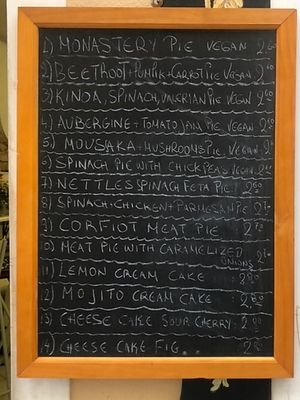 1) MONASTERY PIE VEGAN 2.60
2) BEETROOT+PUMPKIN+CARROT PIE VEGAN 2.60
3) KINOA, SPINACH, VALERIAN PIE VEGAN 2.60
4) AUBERGINE+TOMATO JAM PIE VEGAN 2.60
5) MOUSAKA+MUSHROOMS PIE VEGAN
6) SPINACH PIE WITH CHICKPEAS VEGAN
7) NETTLES SPINACH FETA PIE 2.60
8) SPINACH+CHICKEN+PARMESAN PIE
9) CORFIOT MEAT PIE
10) MEAT PIE WITH CARAMELIZED
ONIONS
11) LEMON CREAM CAKE 2.80
12) MOJITO CREAM CAKE 2.80
13) CHEESE CAKE SOUR CHERRY 2.80
14) CHEESE CAKE FIG .. 2.80